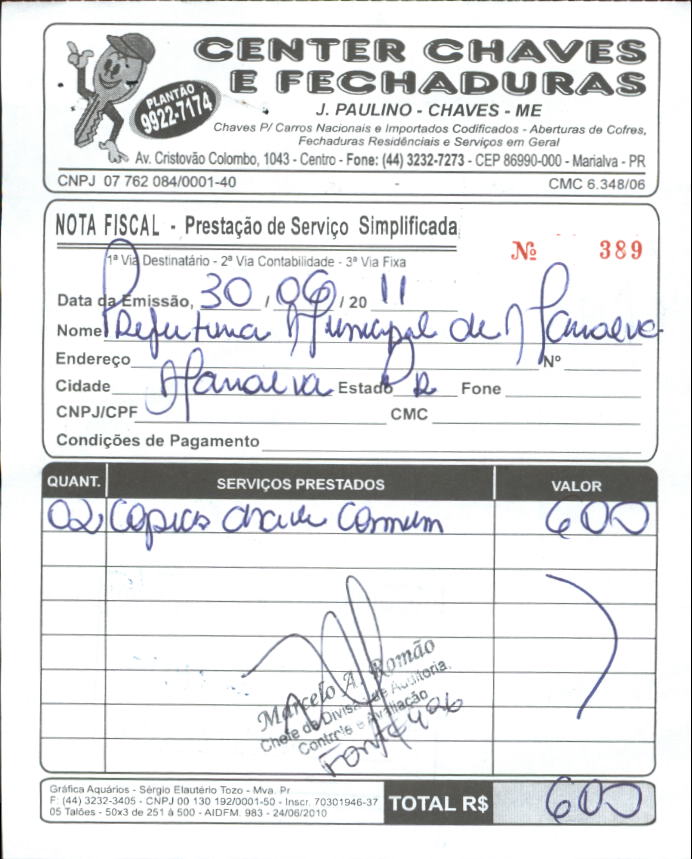 CENTER CHAVES
E FECHADURAS
PLANTÃO
9922-7174
J. PAULINO - CHAVES - ME
Chaves P/ Carros Nacionais e Importados Codificados - Aberturas de Cofres,
Fechaduras Residênciais e Serviços em Geral
Av. Cristovão Colombo, 1043 - Centro - Fone: (44) 3232-7273 - CEP 86990-000 - Marialva - PR
CNPJ 07 762 084/0001-40 - CMC 6.348/06
NOTA FISCAL - Prestação de Serviço Simplificada
Nº 389
1ª Via Destinatário - 2ª Via Contabilidade - 3ª Via Fixa
Data da Emissão, 30 / 06 / 20 11
Nome Prefeitura Municipal de Marialva
Endereço Nº
Cidade Marialva Estado Pr Fone
CNPJ/CPF CMC
Condições de Pagamento
QUANT. SERVIÇOS PRESTADOS VALOR
02 Copias chave Comum 600
Marcelo A. Romão
Chefe de Divisão de Auditoria,
Controle e Avaliação
Gráfica Aquários - Sérgio Elautério Tozo - Mva. Pr
F: (44) 3232-3405 - CNPJ 00 130 192/0001-50 - Inscr. 70301946-37
05 Talões - 50x3 de 251 à 500 - AIDFM. 983 - 24/06/2010
TOTAL R$ 600